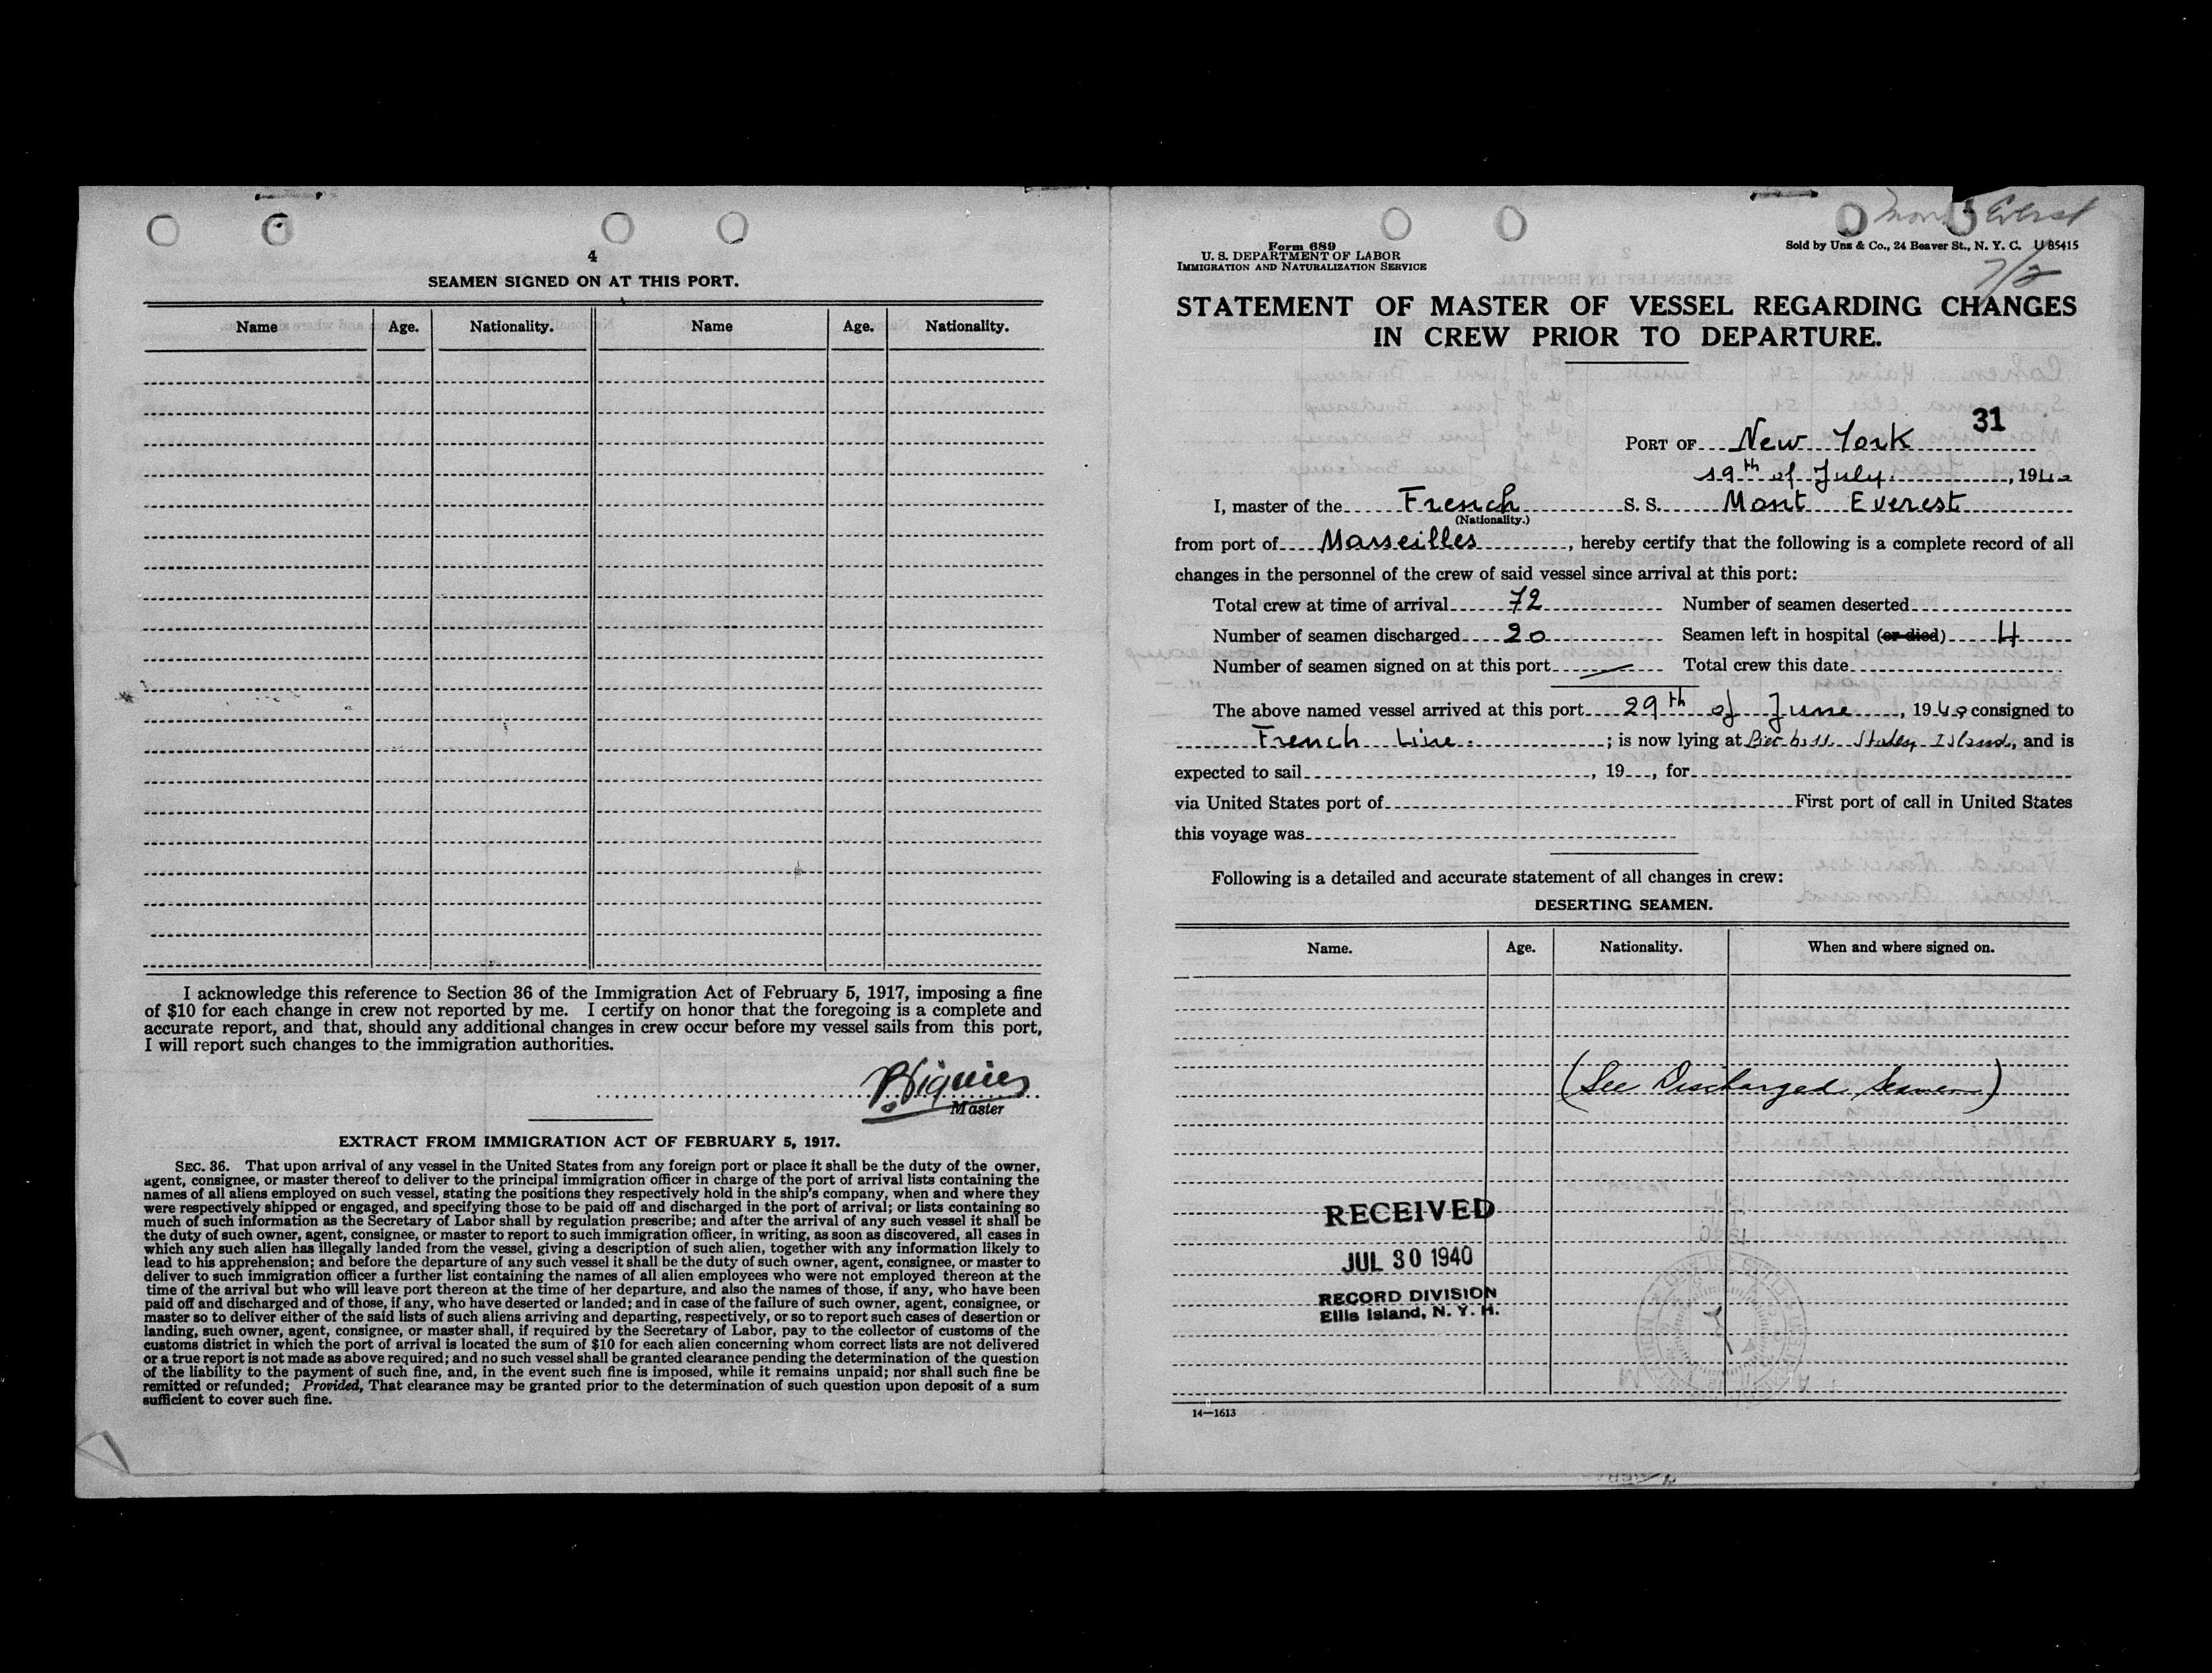 4
SEAMEN SIGNED ON AT THIS PORT.
Name Age. Nationality. Name Age. Nationality.
I acknowledge this reference to Section 36 of the Immigration Act of February 5, 1917, imposing a fine
of $10 for each change in crew not reported by me. I certify on honor that the foregoing is a complete and
accurate report, and that, should any additional changes in crew occur before my vessel sails from this port,
I will report such changes to the immigration authorities.
Master
EXTRACT FROM IMMIGRATION ACT OF FEBRUARY 5, 1917.
SEC. 36. That upon arrival of any vessel in the United States from any foreign port or place it shall be the duty of the owner,
agent, consignee, or master thereof to deliver to the principal immigration officer in charge of the port of arrival lists containing the
names of all aliens employed on such vessel, stating the positions they respectively hold in the ship's company, when and where they
were respectively shipped or engaged, and specifying those to be paid off and discharged in the port of arrival; or lists containing so
much of such information as the Secretary of Labor shall by regulation prescribe; and after the arrival of any such vessel it shall be
the duty of such owner, agent, consignee, or master to report to such immigration officer, in writing, as soon as discovered, all cases in
which any such alien has illegally landed from the vessel, giving a description of such alien, together with any information likely to
lead to his apprehension; and before the departure of any such vessel it shall be the duty of such owner, agent, consignee, or master to
deliver to such immigration officer a further list containing the names of all alien employees who were not employed thereon at the
time of the arrival but who will leave port thereon at the time of her departure, and also the names of those, if any, who have been
paid off and discharged and of those, if any, who have deserted or landed; and in case of the failure of such owner, agent, consignee, or
master so to deliver either of the said lists of such aliens arriving and departing, respectively, or so to report such cases of desertion or
landing, such owner, agent, consignee, or master shall, if required by the Secretary of Labor, pay to the collector of customs of the
customs district in which the port of arrival is located the sum of $10 for each alien concerning whom correct lists are not delivered
or a true report is not made as above required; and no such vessel shall be granted clearance pending the determination of the question
of the liability to the payment of such fine, and, in the event such fine is imposed, while it remains unpaid; nor shall such fine be
remitted or refunded; Provided, That clearance may be granted prior to the determination of such question upon deposit of a sum
sufficient to cover such fine.
Mont Everest
Form 689
U. S. DEPARTMENT OF LABOR
IMMIGRATION AND NATURALIZATION SERVICE
Sold by Unz & Co., 24 Beaver St., N. Y. C. U 85415
7/2
STATEMENT OF MASTER OF VESSEL REGARDING CHANGES
IN CREW PRIOR TO DEPARTURE.
31
PORT OF New York
19th of July, 1940
I, master of the French S. S. Mont Everest
(Nationality.)
from port of Marseilles, hereby certify that the following is a complete record of all
changes in the personnel of the crew of said vessel since arrival at this port:
Total crew at time of arrival 72 Number of seamen deserted
Number of seamen discharged 20 Seamen left in hospital (or died) 4
Number of seamen signed on at this port Total crew this date
The above named vessel arrived at this port 29th of June, 1940 consigned to
French Line.; is now lying at Pier Staten Island, and is
expected to sail, 19, for
via United States port of First port of call in United States
this voyage was
Following is a detailed and accurate statement of all changes in crew:
DESERTING SEAMEN.
Name. Age. Nationality. When and where signed on.
(See Discharged Seamen)
RECEIVED
JUL 30 1940
RECORD DIVISION
Ellis Island, N. Y. H.
14—1613